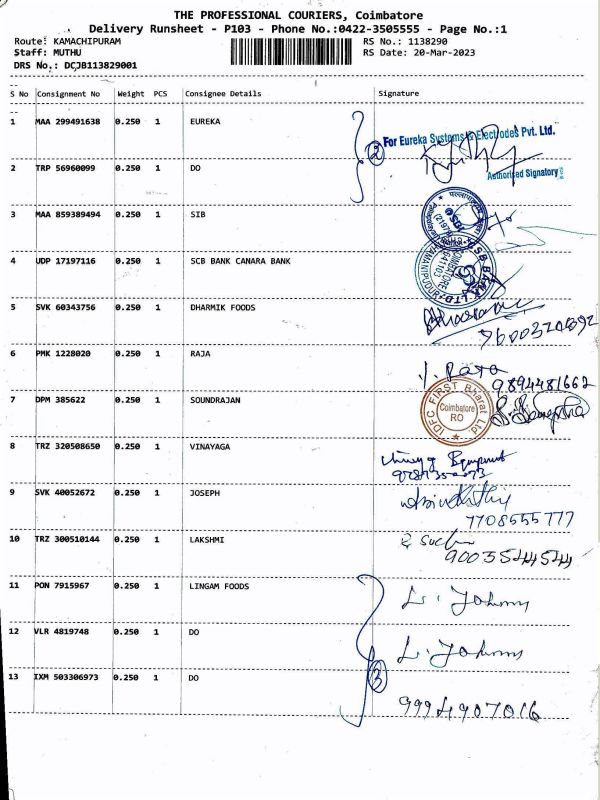 THE PROFESSIONAL COURIERS, Coimbatore
Delivery Runsheet - P103 - Phone No.:0422-3505555 - Page No.:1
Route: KAMACHIPURAM RS No.: 1138290
Staff: MUTHU RS Date: 20-Mar-2023
DRS No.: DCJB113829001
S No Consignment No Weight PCS Consignee Details Signature
1 MAA 299491638 0.250 1 EUREKA
For Eureka Systems & Electrodes Pvt. Ltd.
2
Authorised Signatory
2 TRP 56960099 0.250 1 DO
3 MAA 859389494 0.250 1 SIB
4 UDP 17197116 0.250 1 SCB BANK CANARA BANK
COIMBATORE
641103
5 SVK 60343756 0.250 1 DHARMIK FOODS
6 PMK 1228020 0.250 1 RAJA
9894481662
7 DPM 385622 0.250 1 SOUNDRAJAN
IDFC FIRST Bharat Ltd
Coimbatore
RO
8 TRZ 320508650 0.250 1 VINAYAGA
9 SVK 40052672 0.250 1 JOSEPH
7708555777
10 TRZ 300510144 0.250 1 LAKSHMI
9003544544
11 PON 7915967 0.250 1 LINGAM FOODS
L. Johnny
12 VLR 4819748 0.250 1 DO
L. Johnny
13 IXM 503306973 0.250 1 DO
3
9994907016